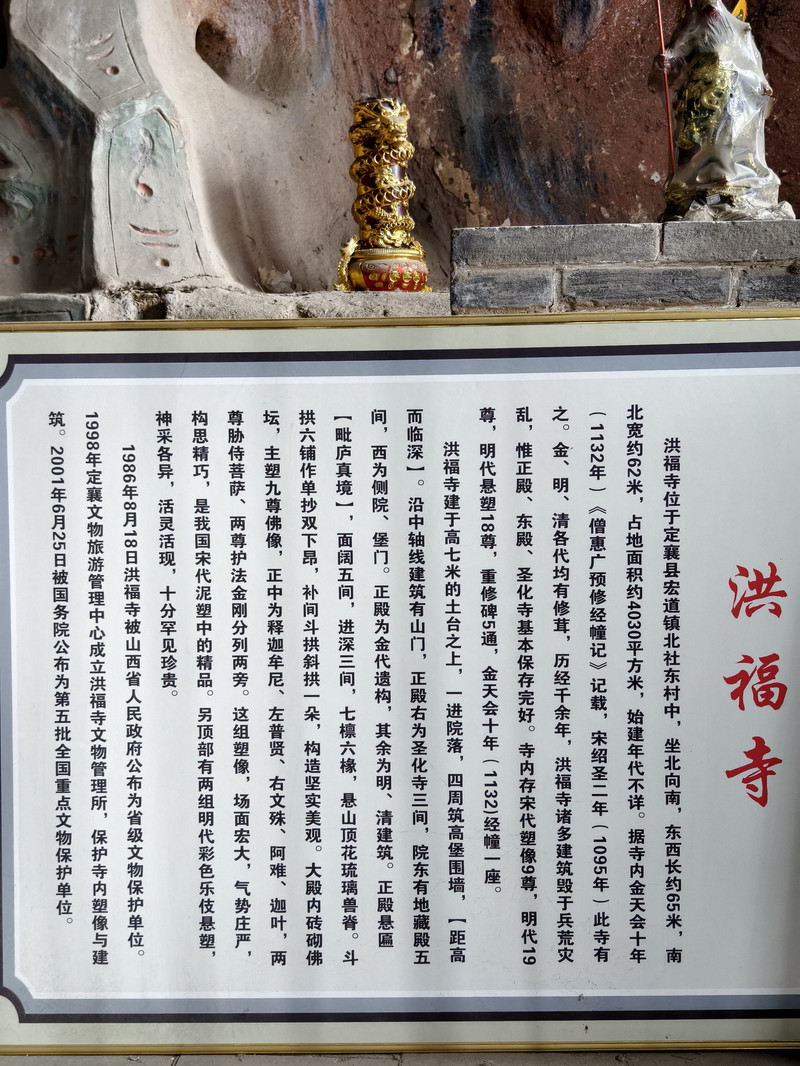 洪福寺
洪福寺位于定襄县宏道镇北社东村中，坐北向南，东西长约65米，南
北宽约62米，占地面积约4030平方米，始建年代不详。据寺内金天会十年
（1132年）《僧惠广预修经幢记》记载，宋绍圣二年（1095年）此寺有
之。金、明、清各代均有修葺，历经千余年，洪福寺诸多建筑毁于兵荒灾
乱，惟正殿、东殿、圣化寺基本保存完好。寺内存宋代塑像9尊，明代19
尊，明代悬塑18尊，重修碑5通，金天会十年（1132)经幢一座。
洪福寺建于高七米的土台之上，一进院落，四周筑高堡围墙，【距高
而临深】。沿中轴线建筑有山门，正殿右为圣化寺三间，院东有地藏殿五
间，西为侧院、堡门。正殿为金代遗构，其余为明、清建筑。正殿悬匾
【毗庐真境】，面阔五间，进深三间，七檩六椽，悬山顶花琉璃兽脊。斗
拱六铺作单抄双下昂，补间斗拱斜拱一朵，构造坚实美观。大殿内砖砌佛
坛，主塑九尊佛像，正中为释迦牟尼、左普贤、右文殊、阿难、迦叶，两
尊胁侍菩萨、两尊护法金刚分列两旁。这组塑像，场面宏大，气势庄严，
构思精巧，是我国宋代泥塑中的精品。另顶部有两组明代彩色乐伎悬塑，
神采各异，活灵活现，十分罕见珍贵。
1986年8月18日洪福寺被山西省人民政府公布为省级文物保护单位。
1998年定襄文物旅游管理中心成立洪福寺文物管理所，保护寺内塑像与建
筑。2001年6月25日被国务院公布为第五批全国重点文物保护单位。